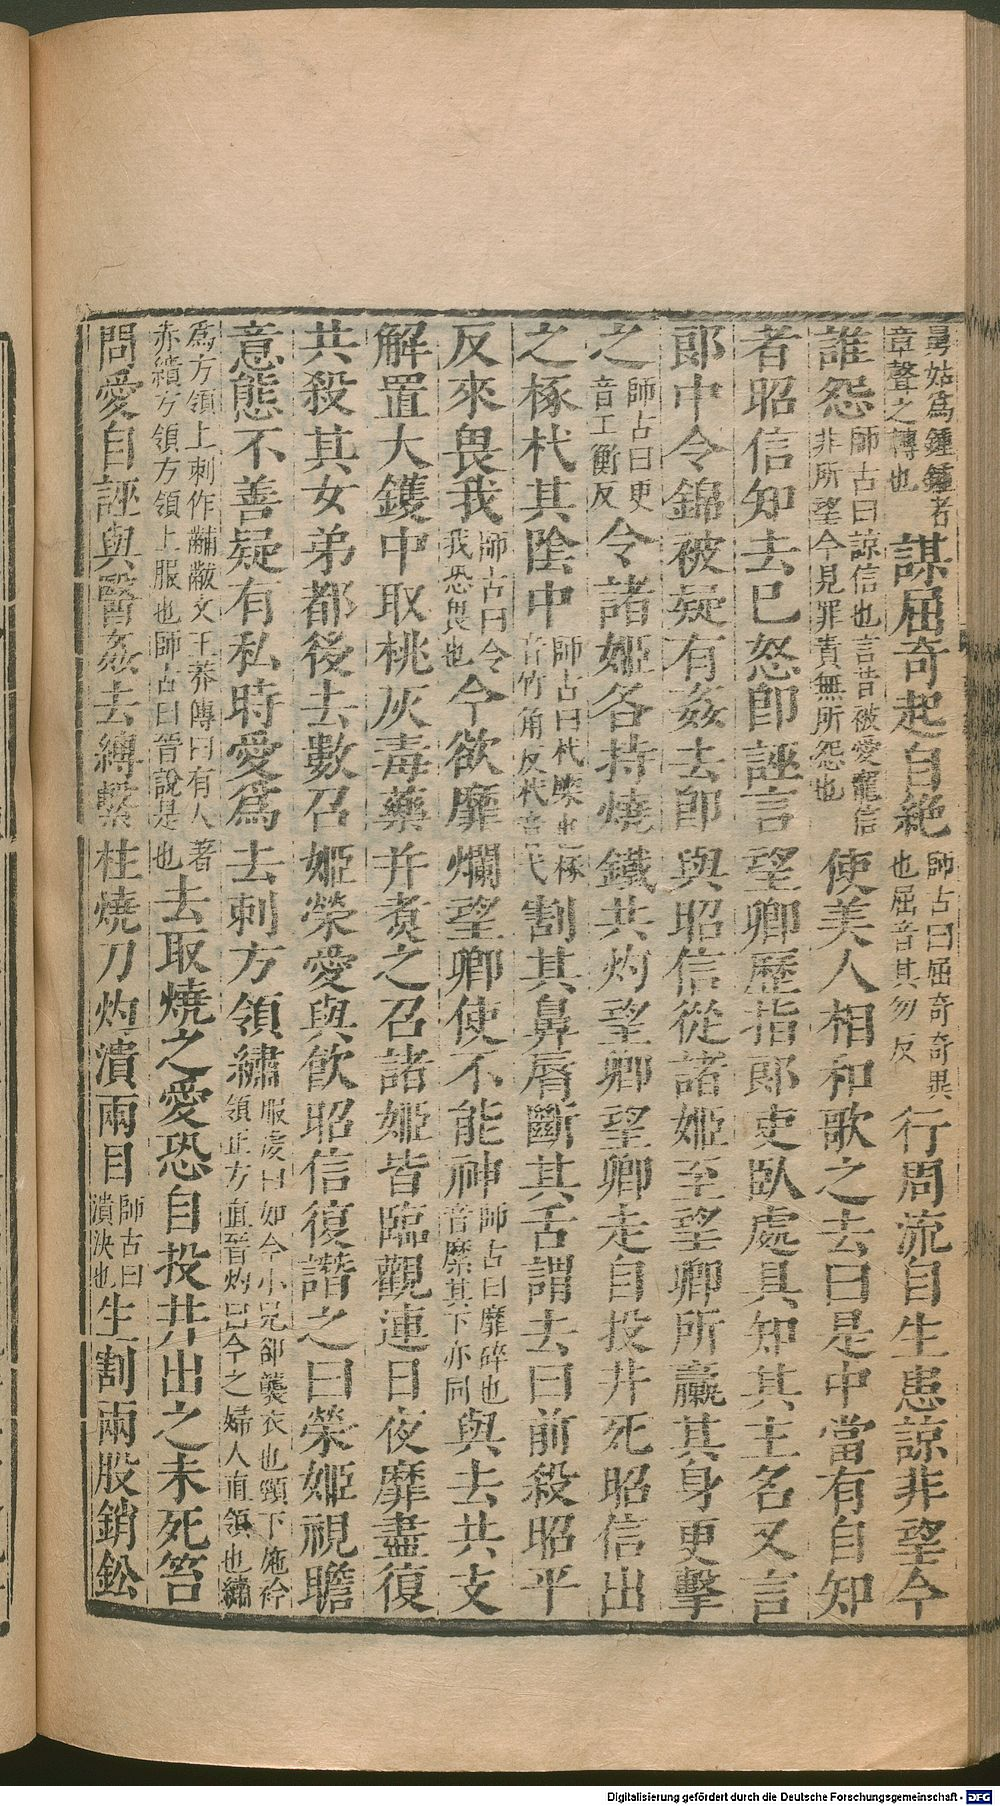 舅姑爲鍾鍾者章聲之轉也謀屈奇起自絶師古曰屈奇奇異也屈音其勿反行周流自生患諒非望今
誰怨師古曰諒信也言昔被愛寵信非所望今見罪責無所怨也使美人相和歌之去曰是中當有自知
者昭信知去已怒即誣言望卿歷指郎吏臥處具知其主名又言
郎中令錦被疑有姦去即與昭信從諸姬至望卿所臝其身更擊
之師古曰更音工衡反令諸姬各持燒鐵共灼望卿望卿走自投井死昭信出
之椓杙其陰中師古曰杙橜也椓音竹角反杙音弋割其鼻脣斷其舌謂去曰前殺昭平
反來畏我師古曰令我恐畏也今欲靡爛望卿使不能神師古曰靡碎也音糜其下亦同與去共支
解置大鑊中取桃灰毒藥并煑之召諸姬皆臨觀連日夜靡盡復
共殺其女弟都後去數召姬榮愛與飲昭信復譖之曰榮姬視瞻
意態不善疑有私時愛爲去刺方領繡服虔曰如今小兒卻襲衣也頸下施衿領正方直晉灼曰今之婦人直領也繡
爲方領上刺作黼黻文王莽傳曰有人著赤繢方領方領上服也師古曰晉說是也去取燒之愛恐自投井出之未死笞
問愛自誣與醫姦去縛繫柱燒刀灼潰兩目師古曰潰決也生割兩股銷鈆
Digitalisierung gefördert durch die Deutsche Forschungsgemeinschaft - DFG